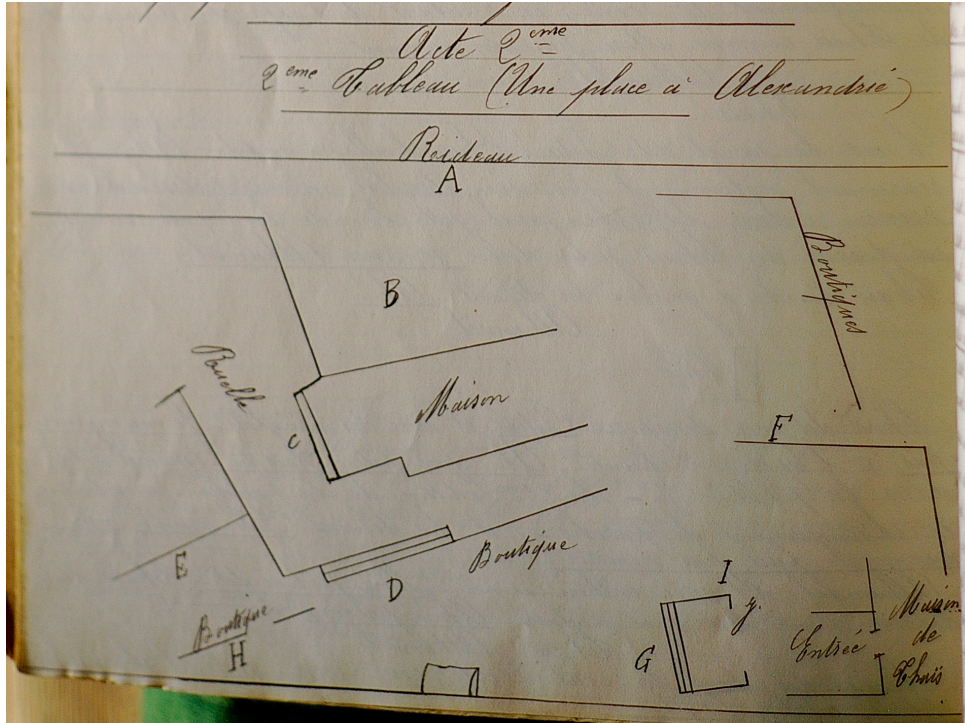 Acte 2eme
2eme Tableau (Une place à Alexandrié)
Rideau
A
Boutiques
B
Ruelle
Maison
C
F
Boutique
E
D
I
y.
Boutique
H
G
Entrée
Maison
de
Thaïs